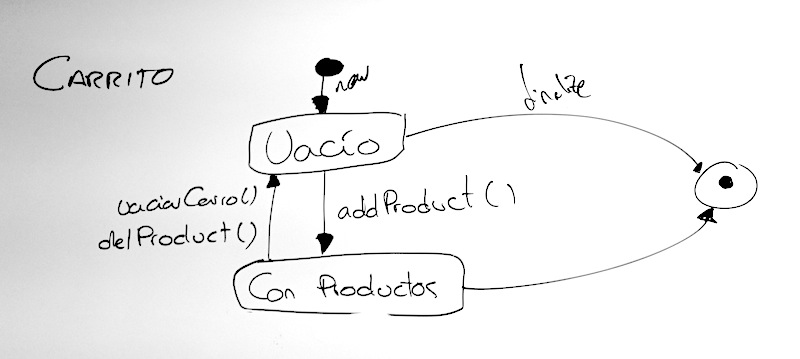 CARRITO
new
finalize
Vacío
vaciarCarro()
delProduct()
addProduct()
Con Productos